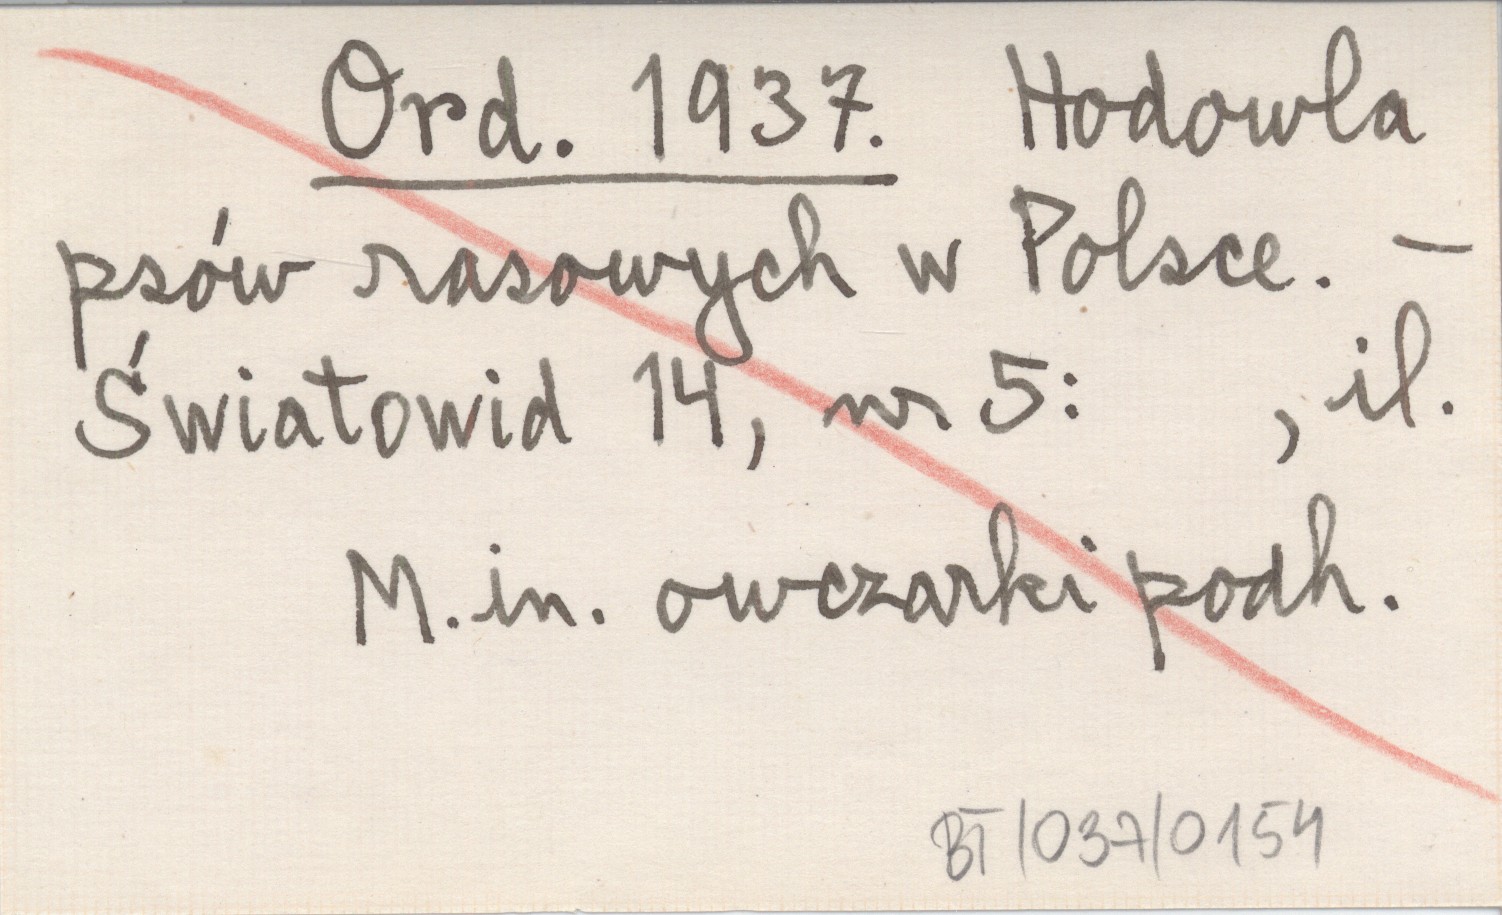 Ord. 1937. Hodowla
psów rasowych w Polsce. —
Światowid 14, nr 5: , il.
M. in. owczarki podh.
BT/037/0154